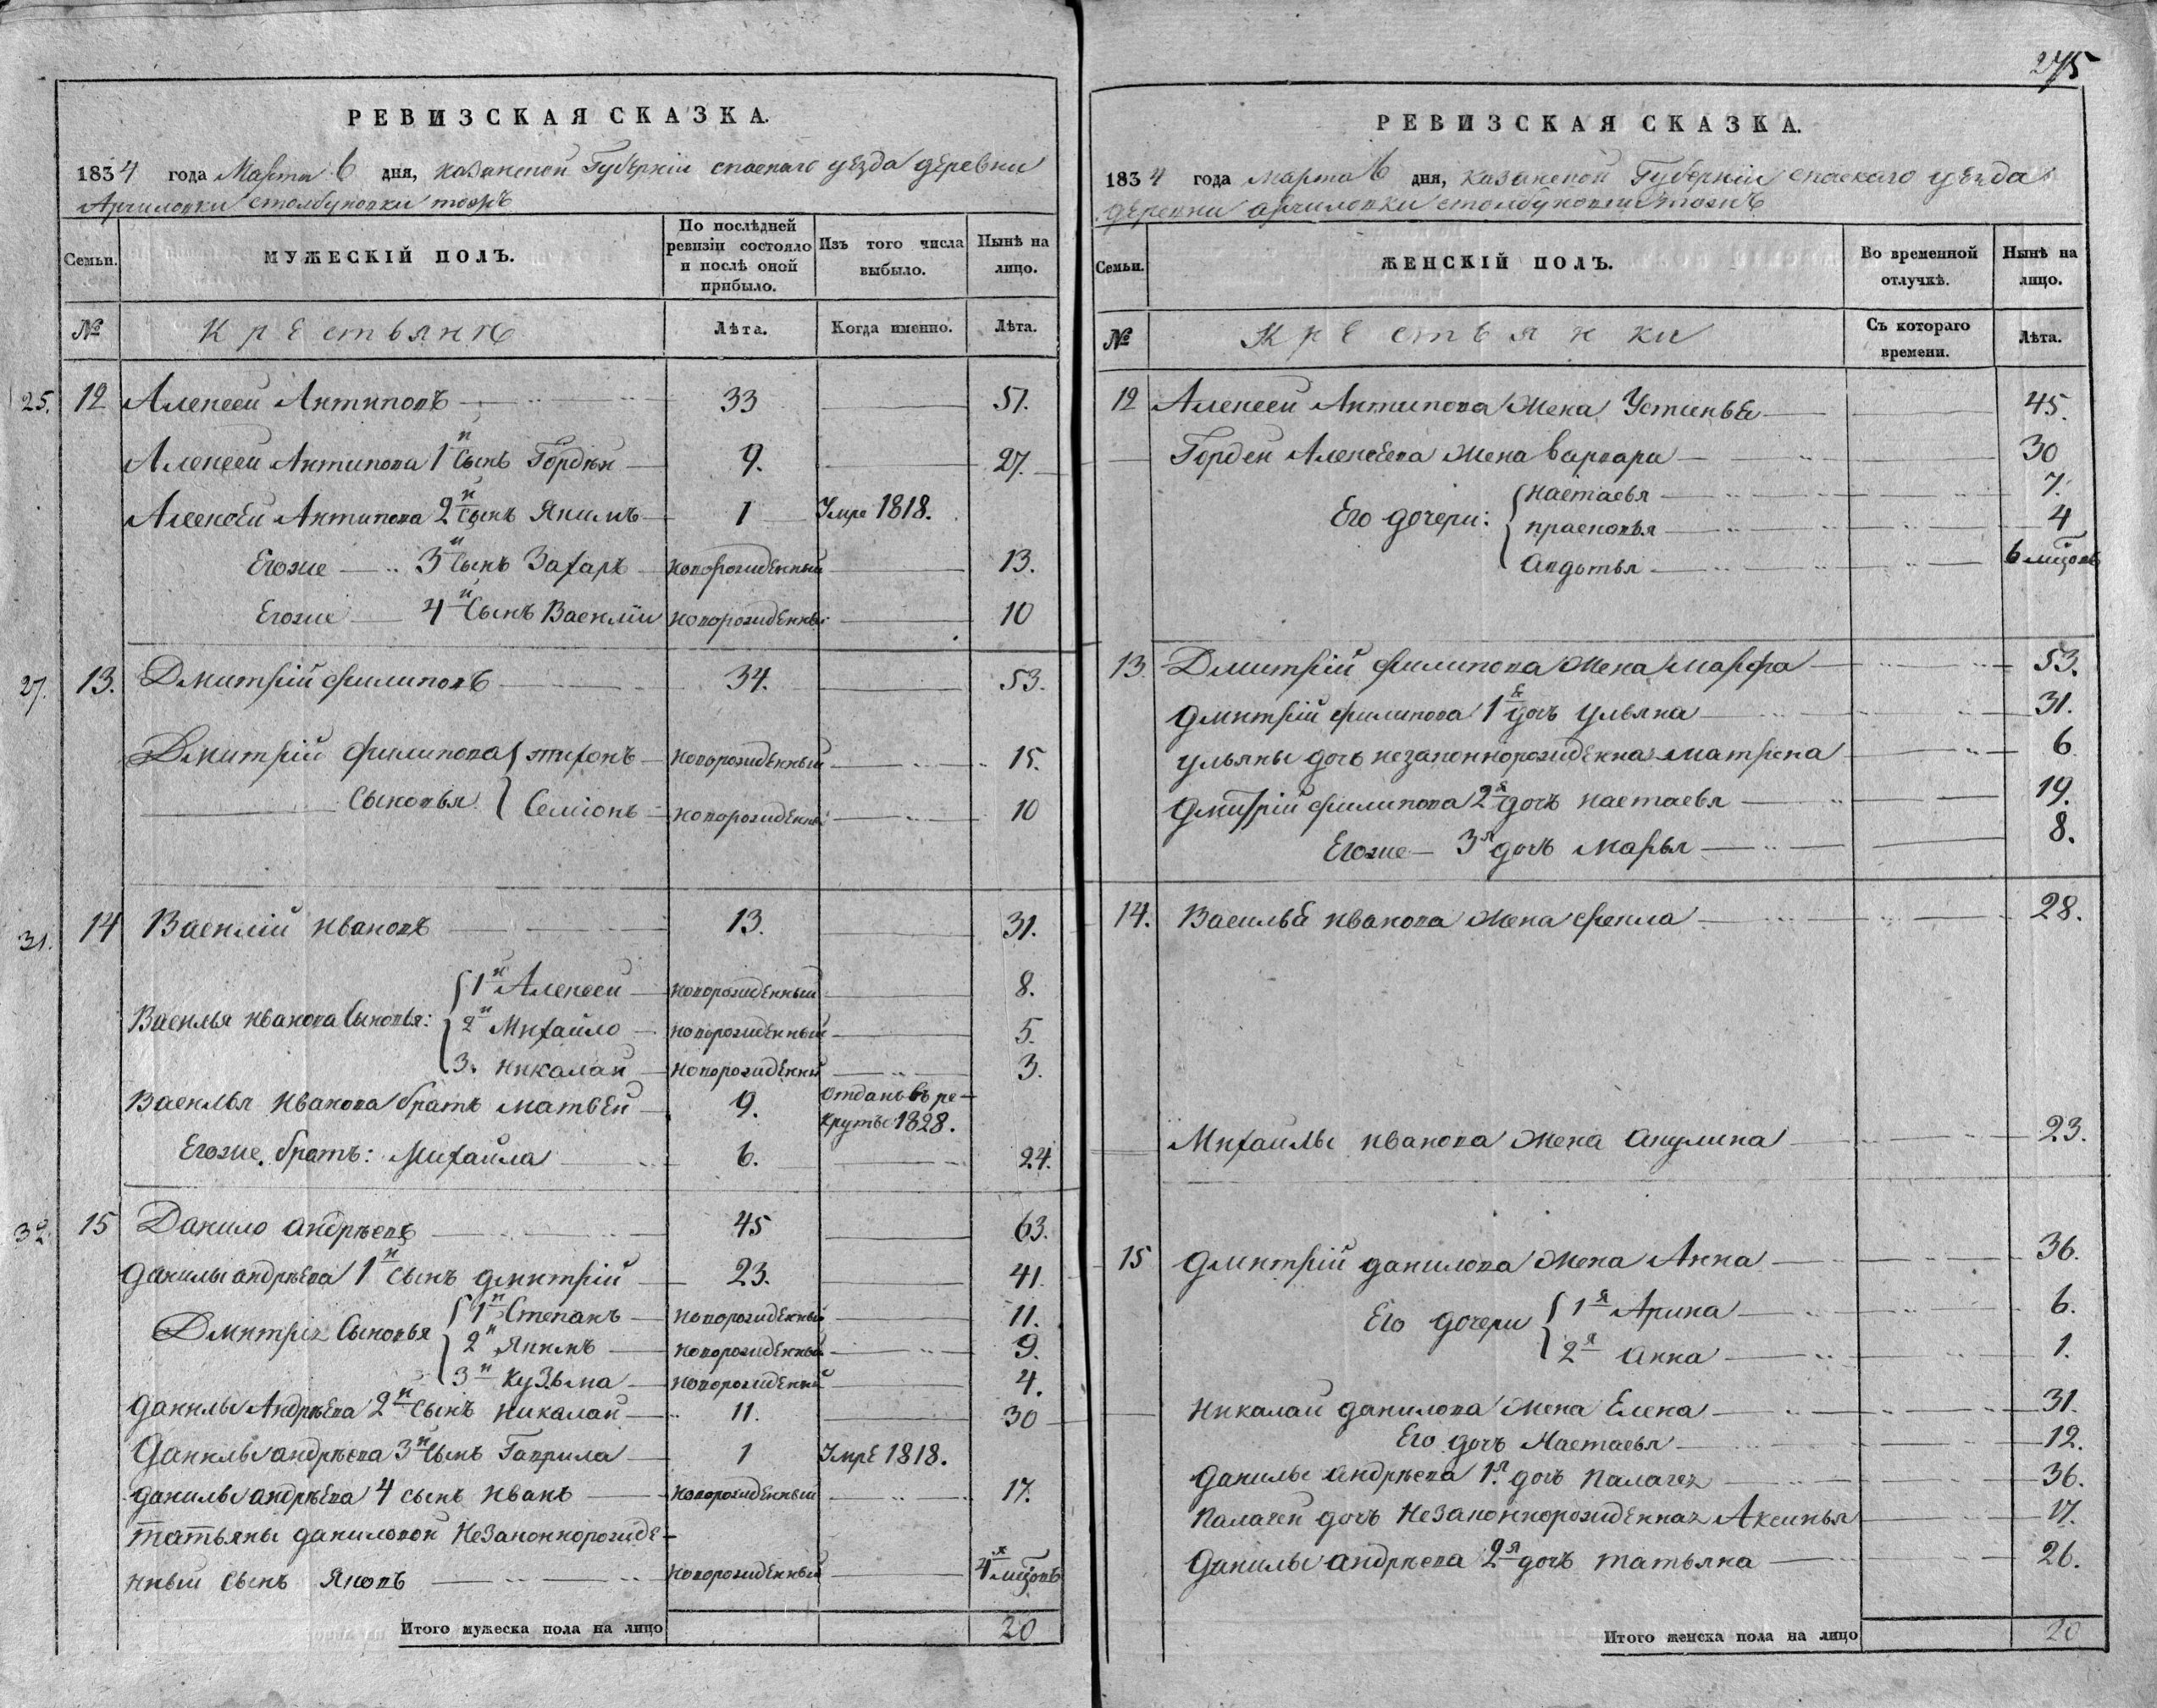 РЕВИЗСКАЯ СКАЗКА.
1834 года Марта 6 дня, казанской Губерніи спаскаго уѣзда деревни
Арчиловки столбуновки тожъ
Семьи.
МУЖЕСКІЙ ПОЛЪ.
По послѣдней ревизіи состояло и послѣ оной прибыло.
Изъ того числа выбыло.
Нынѣ на лицо.
№
Крестьяне
Лѣта.
Когда именно.
Лѣта.
25. 12 Алексей Антиповъ 33 51.
Алексеи Антипова 1й Сынъ Гордѣй 9. 27.
Алексѣи Антипова 2й сынъ Якимъ 1 Умре 1818.
Егоже 3й Сынъ Захаръ новорожденный 13.
Егоже 4й Сынъ Василіи новорожденны 10
27. 13. Дмитрій филиповъ 34. 53.
Дмитрій филипова тихонъ новорожденный 15.
Сыновья Семіонъ новорожденны 10
31. 14 Василій ивановъ 13. 31.
1й Алексеи новорожденный 8.
Василья иванова Сыновья: 2й Михайло новорожденный 5.
3. николаи новорожденны 3.
Василья иванова братъ матвѣй 9. отданъ въ ре-
круты 1828.
Егоже братъ: Михаила 6. 24.
32. 15 Данило андрѣевъ 45 63.
данилы андрѣева 1й сынъ дмитрій 23. 41.
1й Степанъ новорожденный 11.
Дмитрія Сыновья 2й Якимъ новорожденный 9.
3й Кузьма новорожденны 4.
данилы Андрѣева 2й сынъ николаи 11. 30
данилы андрѣева 3й Сынъ Гаврила 1 Умре 1818.
данилы андрѣева 4 сынъ иванъ новорожденный 17.
татьяны даниловой незаконнорожде-
нный сынъ Яковъ новорожденный 4х мцовъ
Итого мужеска пола на лицо 20
275
РЕВИЗСКАЯ СКАЗКА.
1834 года марта 6 дня, казанской Губерніи спаскаго уѣзда
деревни арчиловки столбуновки тожъ
Семьи.
ЖЕНСКІЙ ПОЛЪ.
Во временной отлучкѣ.
Нынѣ на лицо.
№
Крестьянки
Съ котораго времени.
Лѣта.
12 Алексеи Антипова Жена Устинья 45.
Гордеи Алексѣева жена варвара 30
настасья 7.
Его дочери: прасковья 4
Авдотья 6 мцовъ
13. Дмитрій филипова жена марфа 53.
дмитрій филипова 1я дочь ульяна 31.
ульяны дочь незаконнорожденная матрена 6
дмитрій филипова 2я дочь настасья 19.
Егоже 3я дочь марья 8.
14. Василья иванова жена фекла 28.
Михаилы иванова жена акулина 23.
15 дмитрій данилова жена Анна 36.
Его дочери 1я Арина 6.
2я анна 1.
николаи данилова жена Елена 31.
Его дочь Настасья 12.
данилы андрѣева 1я дочь палагея 36.
палагеи дочь незаконнорожденная Аксинья 17.
данилы андрѣева 2я дочь татьяна 26.
Итого женска пола на лицо 20